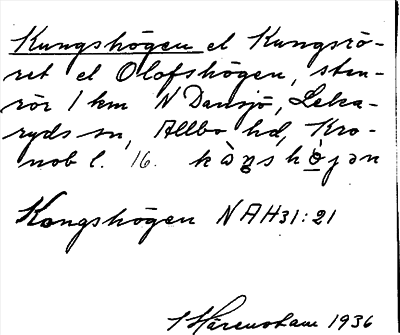 Kungshögen el Kungsrö-
ret el Olofshögen, sten-
rör 1 km N Dansjö, Leka-
ryds sn, Allbo hd, Kro-
nob l. 16. kàŋshòjən
Kongshögen NAH31:21
1936